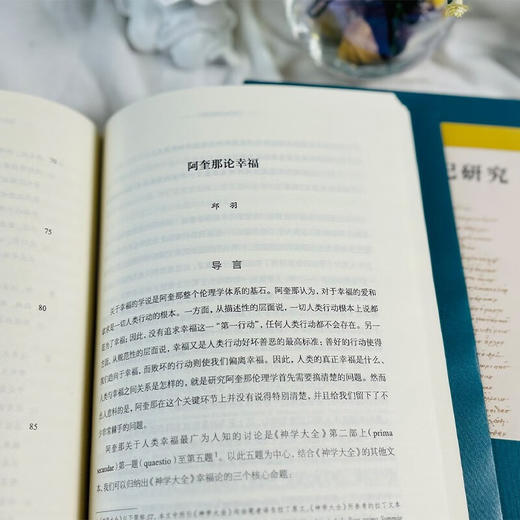 70
75
80
85
阿奎那论幸福
邱 羽
导 言
关于幸福的学说是阿奎那整个伦理学体系的基石。阿奎那认为，对于幸福的爱和
求是一切人类行动的根本。一方面，从描述性的层面说，一切人类行动根本上说都
为了幸福；因此，没有追求幸福这一“第一行动”，任何人类行动都不会存在。另一
面，从规范性的层面说，幸福又是人类行动好坏善恶的最高标准：善好的行动使得
们趋向于幸福，而败坏的行动则使我们偏离幸福。因此，人类的真正幸福是什么、
人类与幸福之间关系是怎样的，就是研究阿奎那伦理学首先需要搞清楚的问题。然而
出人意料的是，阿奎那在这个关键环节上并没有说得特别清楚，并且给我们留下了不
少非常棘手的问题。
阿奎那关于人类幸福最广为人知的讨论是《神学大全》第二部上（prima
secundae）第一题（quaestio）至第五题¹。以此五题为中心，结合《神学大全》的其他文
本，我们可以归纳出《神学大全》幸福论的三个核心命题：
研究